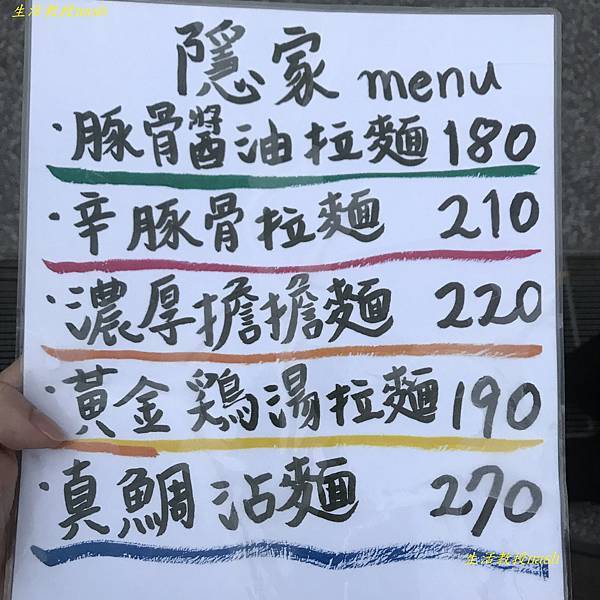 生活教授nash
隱家 menu
·豚骨醬油拉麵 180
·辛豚骨拉麵 210
·濃厚擔擔麵 220
·黃金鶏湯拉麵 190
·真鯛沾麵 270
生活教授nash